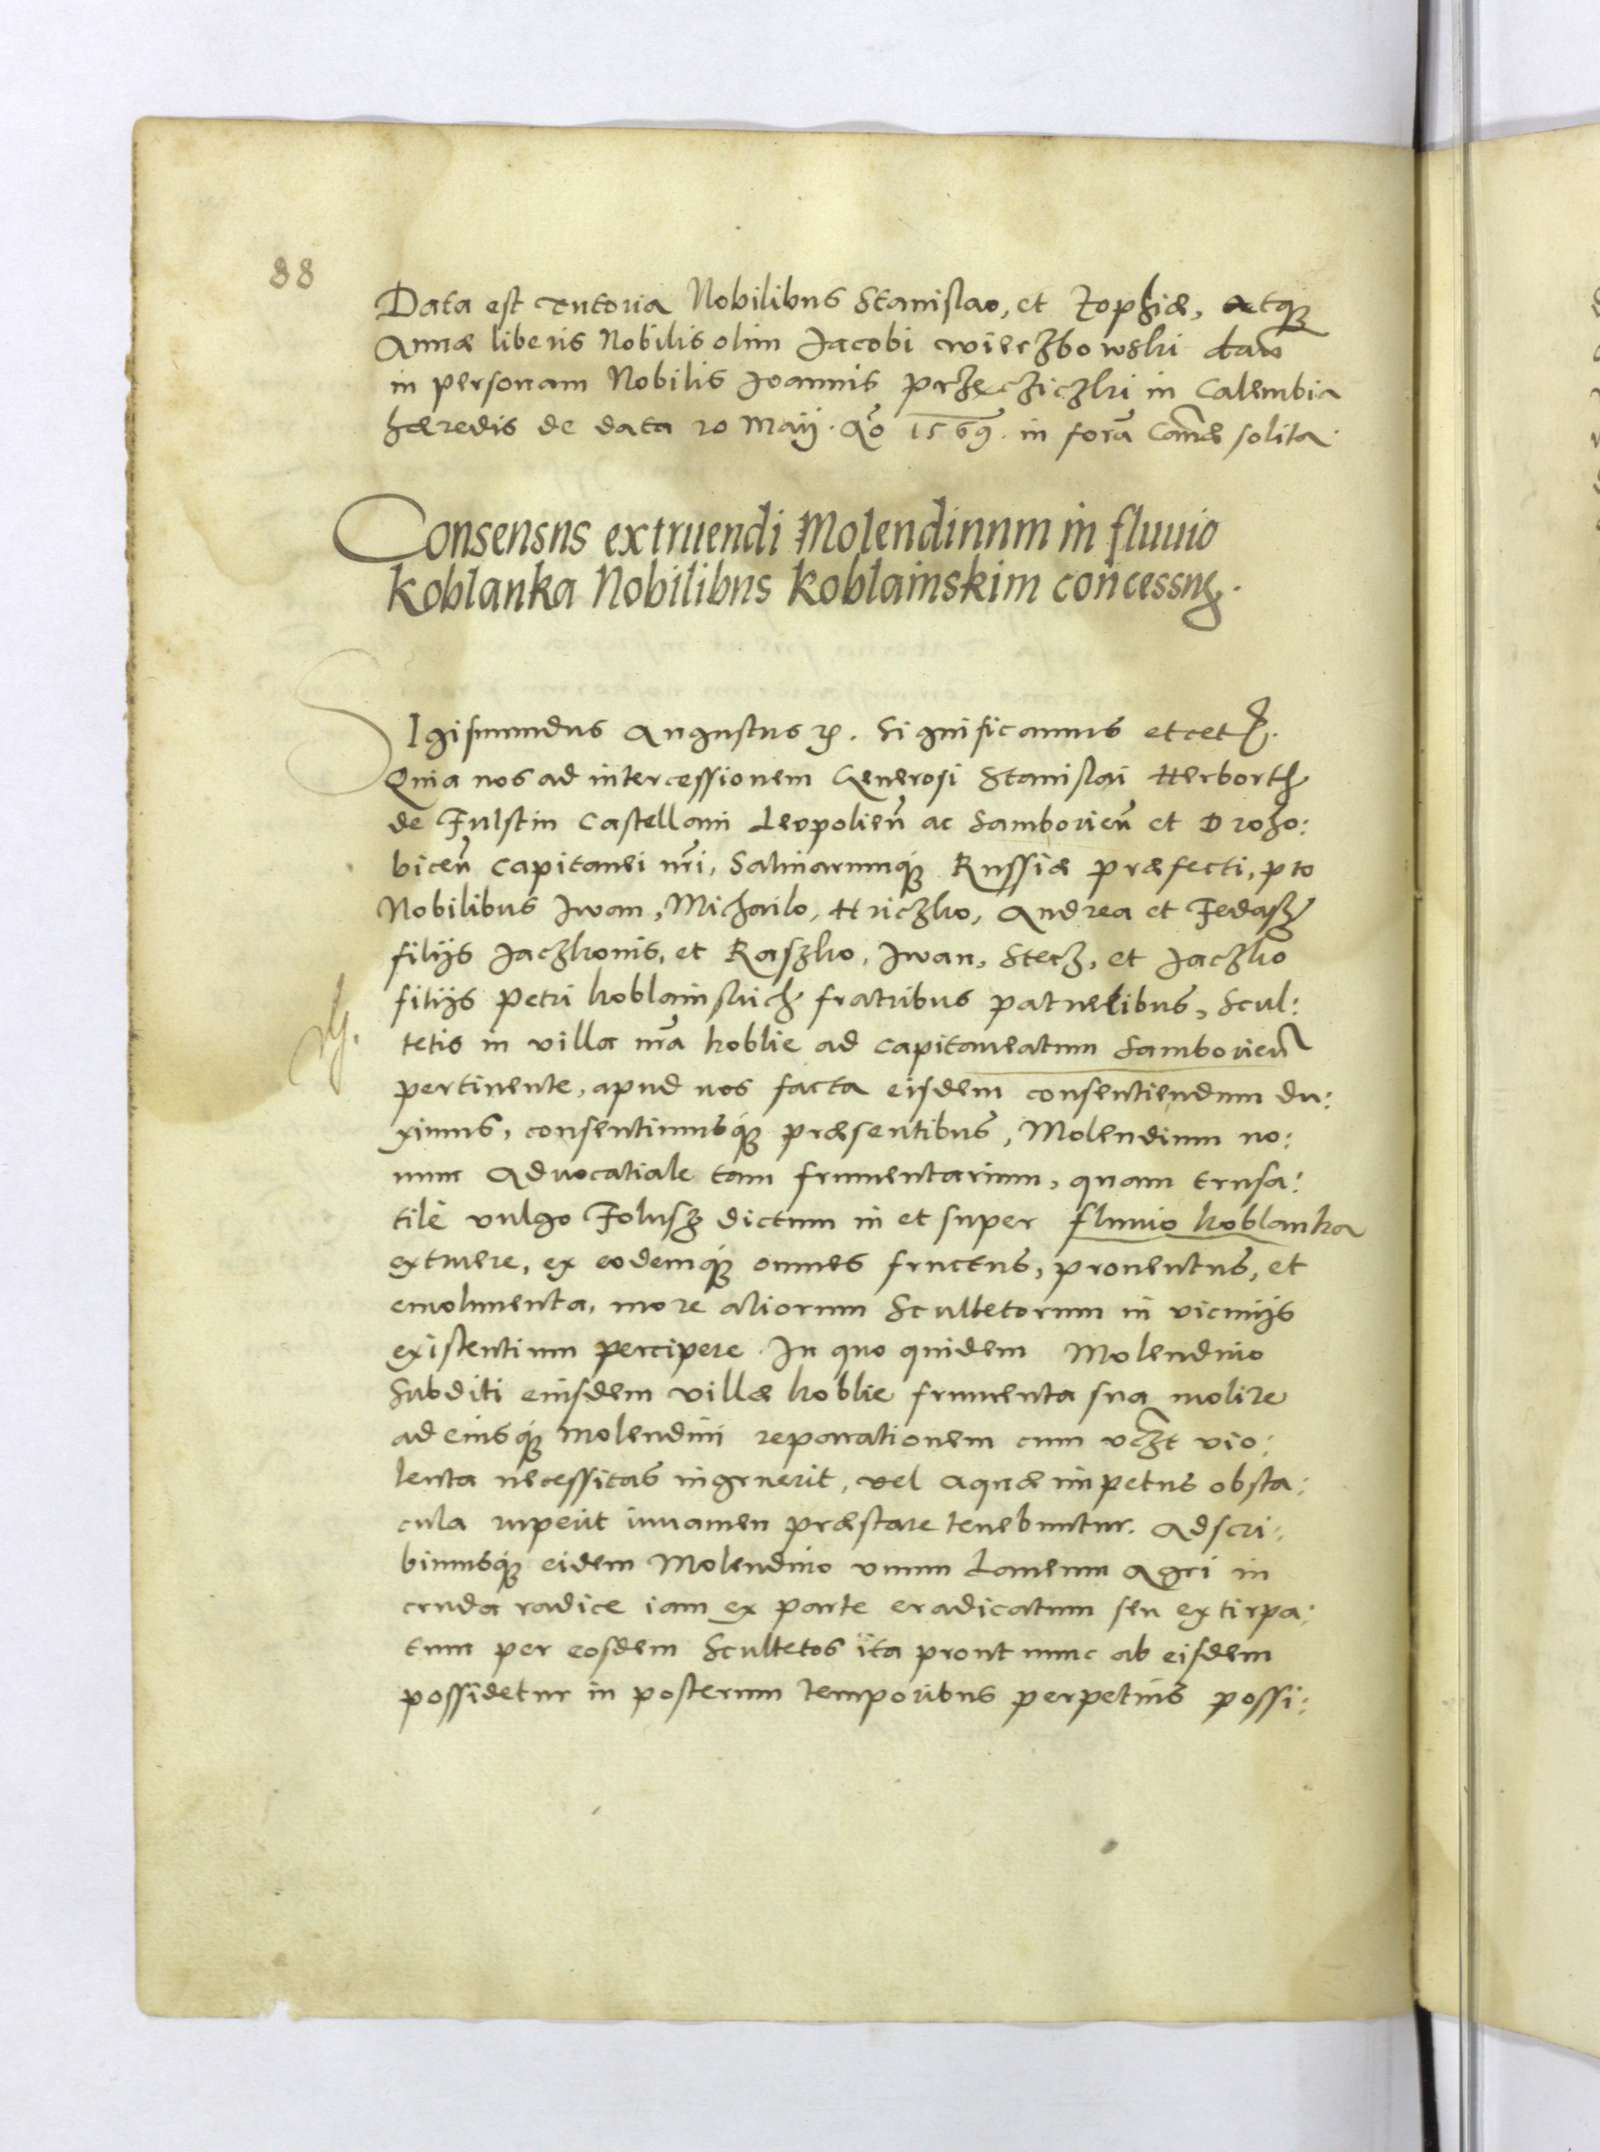 88
Data est Tutoria Nobilibus Stanislao, et Zophiæ, atq₃
Annæ liberis Nobilis olim Jacobi Wierzbowski
in personam Nobilis Joannis Przecziczki in Calembia
hæredis de data 20 Maij. Aõ 1569. in forã Canc̃ solita.
Consensus extruendi Molendinum in fluuio
Koblanka Nobilibus Koblainskim concessus.
Sigismundus Augustus ꝛc. Significamus etcetꝛ.
Quia nos ad intercessionem Generosi Stanislai Herborth
de Fulstin Castellani Leopolien̄ ac Samborien̄ et Droho:
bicen̄ Capitanei nr̃i, Salinarumq́₃ Russiæ præfecti, pro
Nobilibus Iwan, Michailo, Hriczko, Andrea et Fedasz
filijs Jaczkonis, et Raszko, Iwan, Stecz, et Jaczko
filijs Petri Koblainskich fratribus patruelibus, Scul:
tetis in villa nr̃a Koblie ad Capitaneatum Samborien̄
pertinente, apud nos facta eisdem consentiendum du:
ximus, consentimusq́₃ præsentibus, Molendinum no:
uum Aduocatiale tam frumentarium, quam trusa:
tile vulgo Folusz dictum in et super fluuio Koblanka
extruere, ex eodemq́₃ omnes fructus, prouentus, et
emolumenta, more aliorum Scultetorum in vicinijs
existentium percipere. In quo quidem Molendino
Subditi eiusdem villæ Koblie frumenta sua molire
ad eiusq́₃ Molendini reparationem cum vio:
lenta necessitas ingruerit, vel aquæ impetus obsta:
cula ruperit iuuamen præstare tenebuntur. Adscri:
bimusq́₃ eidem Molendino vnum Laneum Agri in
cruda radice iam ex parte eradicatum seu extirpa:
tum per eosdem Scultetos ita prout nunc ab eisdem
possidetur in posterum temporibus perpetuis possi: